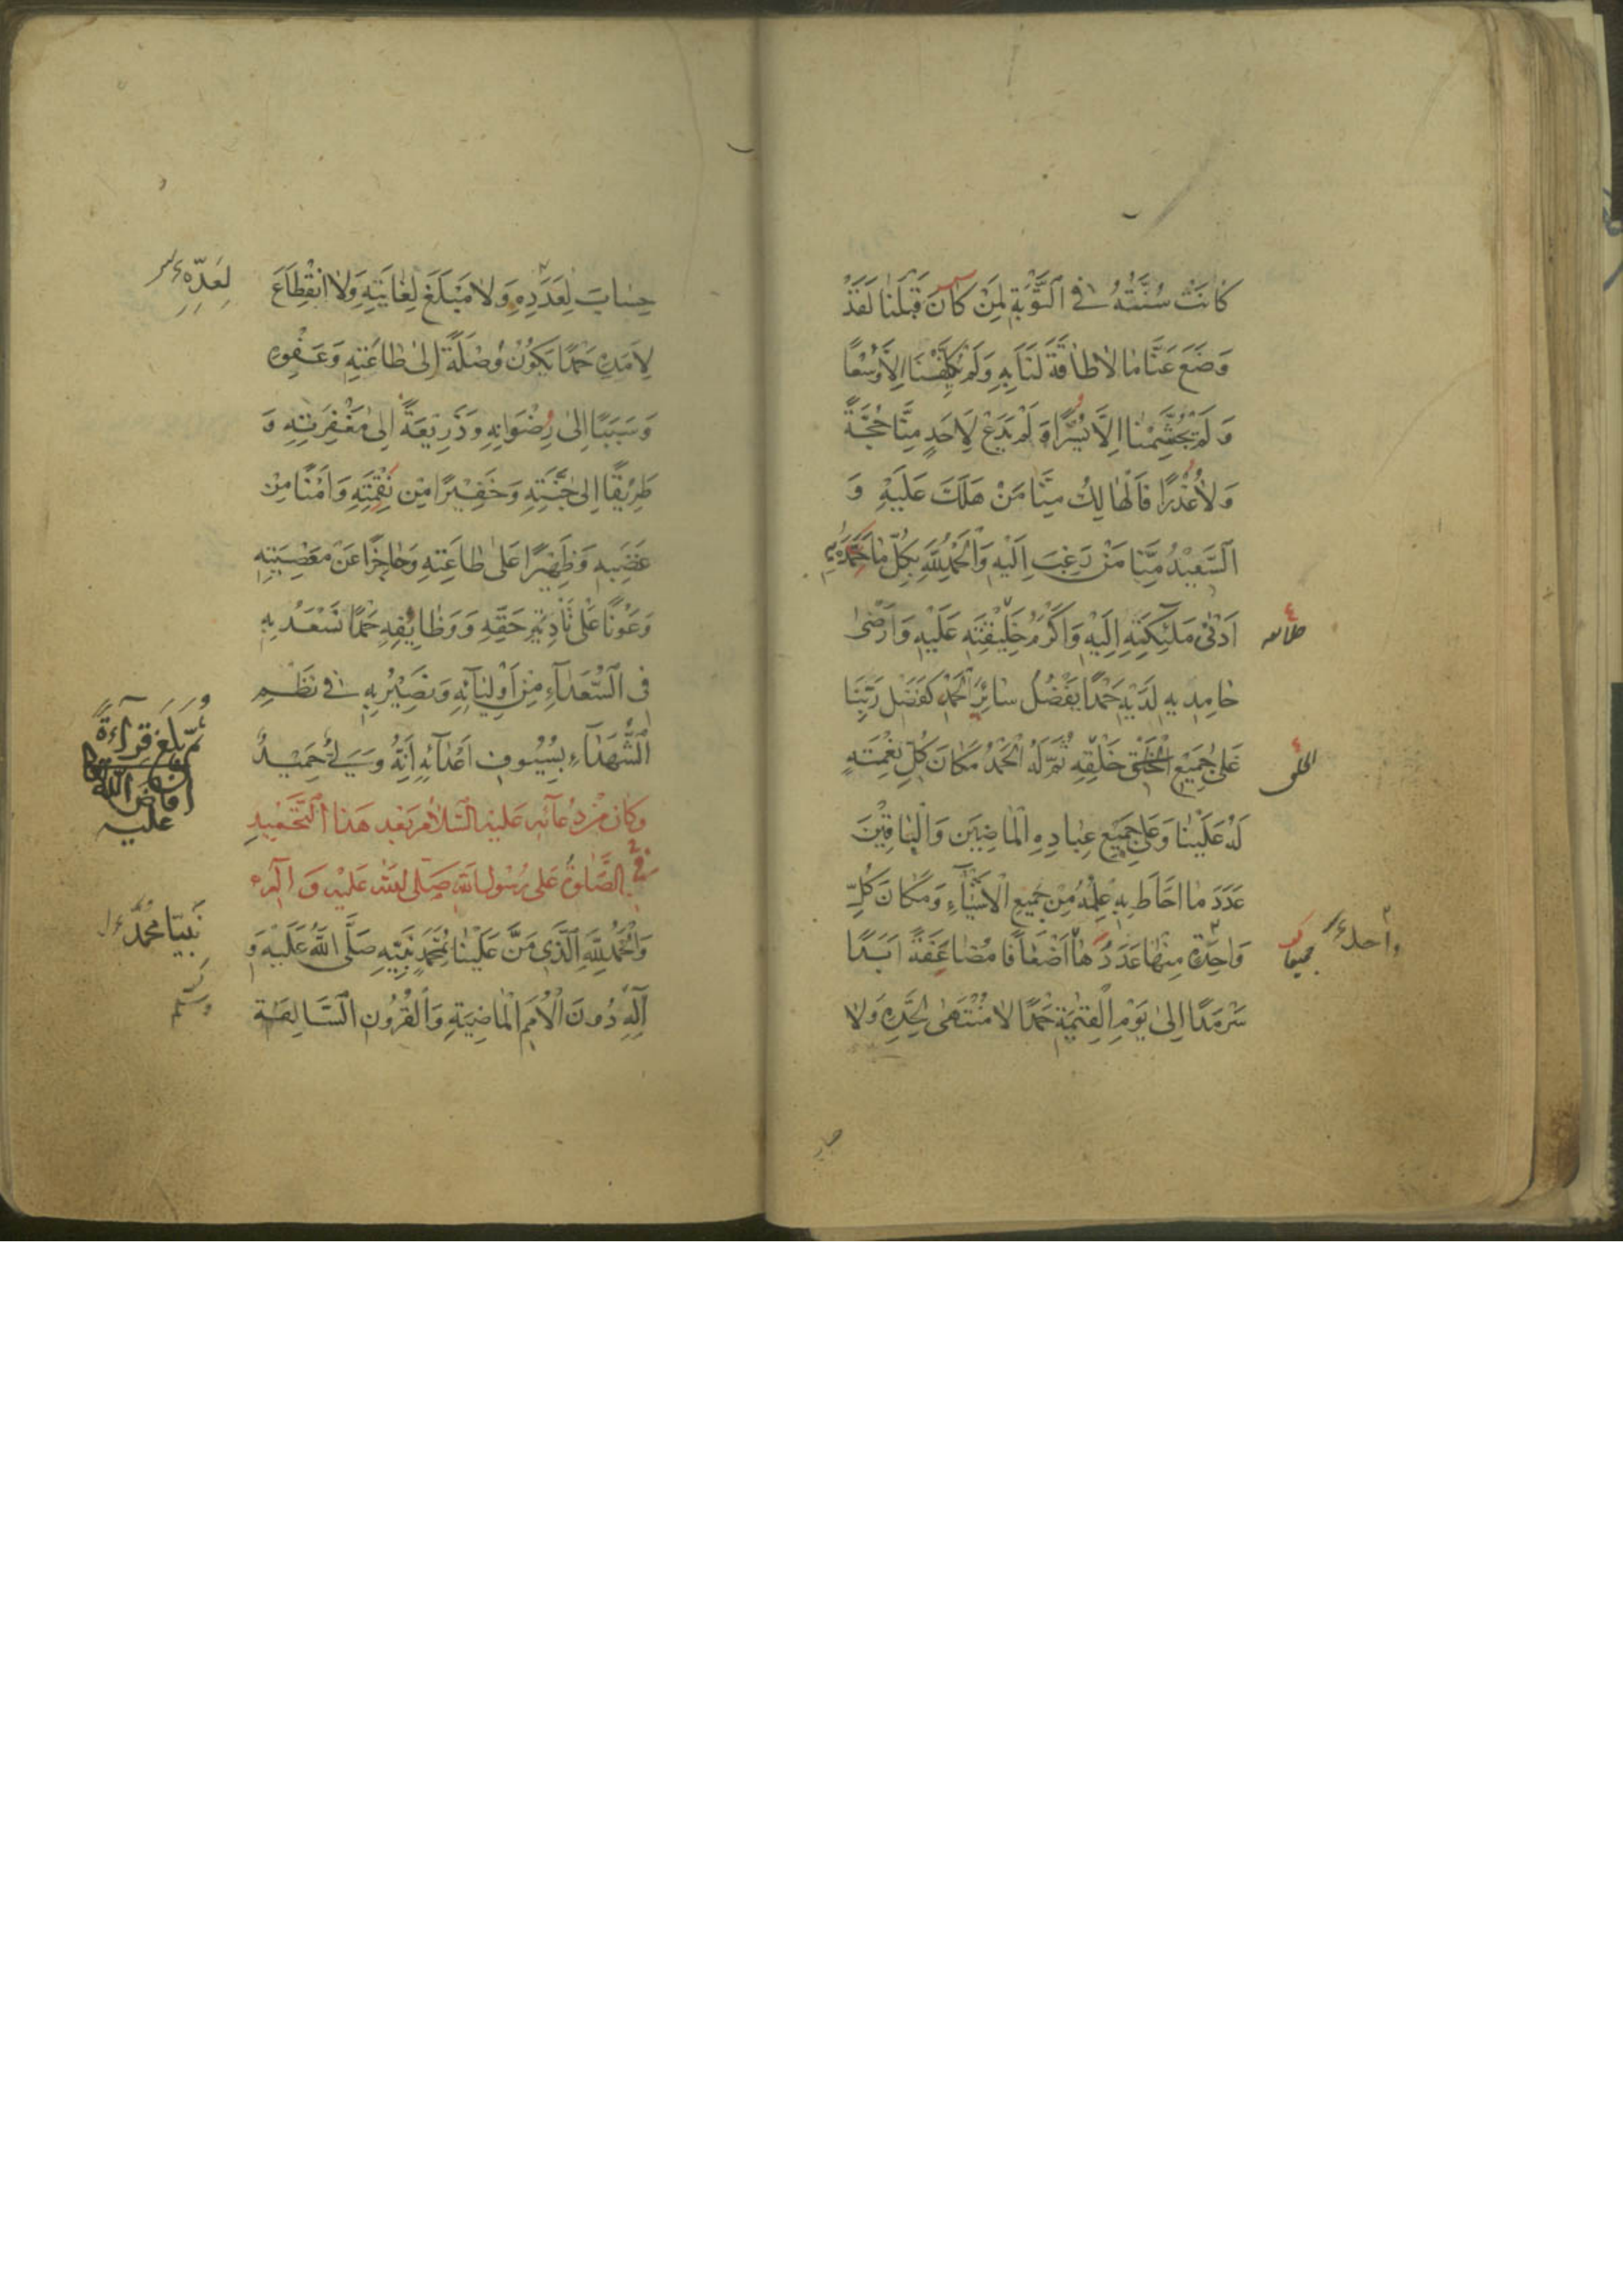 كَانَتْ سُنَّتُهُ فِي التَّوْبَةِ لِمَنْ كَانَ قَبْلَنَا لَقَدْ
وَضَعَ عَنَّا مَا لَا طَاقَةَ لَنَا بِهِ وَلَمْ يُكَلِّفْنَا إِلَّا وُسْعًا
وَلَمْ يُجَشِّمْنَا إِلَّا يُسْرًا وَلَمْ يَدَعْ لِأَحَدٍ مِنَّا حُجَّةً
وَلَا عُذْرًا فَالْهَالِكُ مِنَّا مَنْ هَلَكَ عَلَيْهِ وَ
السَّعِيدُ مِنَّا مَنْ رَغِبَ إِلَيْهِ وَالْحَمْدُ لِلَّهِ بِكُلِّ مَا حَمِدَهُ بِهِ
أَدْنَى مَلَئِكَتِهِ إِلَيْهِ وَأَكْرَمُ خَلِيقَتِهِ عَلَيْهِ وَأَرْضَى
حَامِدِيهِ لَدَيْهِ حَمْدًا يَفْضُلُ سَائِرَ الْحَمْدِ كَفَضْلِ رَبِّنَا
عَلَى جَمِيعِ الْخَلْقِ خَلْقِهِ ثُمَّ لَهُ الْحَمْدُ مَكَانَ كُلِّ نِعْمَتِهِ
لَهُ عَلَيْنَا وَعَلَى جَمِيعِ عِبَادِهِ الْمَاضِيِينَ وَالْبَاقِينَ
عَدَدَ مَا أَحَاطَ بِهِ عِلْمُهُ مِنْ جَمِيعِ الْأَشْيَاءِ وَمَكَانَ كُلِّ
وَاحِدَةٍ مِنْهَا عَدَدُهَا أَضْعَافًا مُضَاعَفَةً أَبَدًا
سَرْمَدًا إِلَى يَوْمِ الْقِيَمَةِ حَمْدًا لَا مُنْتَهَى لِحَدِّهِ وَلَا
الخلق
واحد
حِسَابَ لِعَدَدِهِ وَلَا مَبْلَغَ لِغَايَتِهِ وَلَا انْقِطَاعَ
لِأَمَدِهِ حَمْدًا يَكُونُ وُصْلَةً إِلَى طَاعَتِهِ وَعَفْوِهِ
وَسَبَبًا إِلَى رِضْوَانِهِ وَذَرِيعَةً إِلَى مَغْفِرَتِهِ وَ
طَرِيقًا إِلَى جَنَّتِهِ وَخَفِيرًا مِنْ نِقْمَتِهِ وَأَمْنًا مِنْ
غَضَبِهِ وَظَهِيرًا عَلَى طَاعَتِهِ وَحَاجِزًا عَنْ مَعْصِيَتِهِ
وَعَوْنًا عَلَى تَأْدِيَةِ حَقِّهِ وَوَظَائِفِهِ حَمْدًا نَسْعَدُ بِهِ
فِي السُّعَدَاءِ مِنْ أَوْلِيَائِهِ وَنَصِيرُ بِهِ فِي نَظْمِ
الشُّهَدَاءِ بِسُيُوفِ أَعْدَائِهِ إِنَّهُ وَلِيٌّ حَمِيدٌ
وَكَانَ مِنْ دُعَائِهِ عَلَيْهِ السَّلَامُ بَعْدَ هَذَا التَّحْمِيدِ
فِي الصَّلَوةِ عَلَى رَسُولِ اللَّهِ صَلَّى اللَّهُ عَلَيْهِ وَآلِهِ
وَالْحَمْدُ لِلَّهِ الَّذِي مَنَّ عَلَيْنَا بِمُحَمَّدٍ نَبِيِّهِ صَلَّى اللَّهُ عَلَيْهِ وَ
آلِهِ دُونَ الْأُمَمِ الْمَاضِيَةِ وَالْقُرُونِ السَّالِفَةِ
لِعَدِّهِ
ثُمَّ بَلَغَ قِرَاءَةً
أفاض الله
عليه
نَبِيِّنَا مُحَمَّدٍ
وسلم